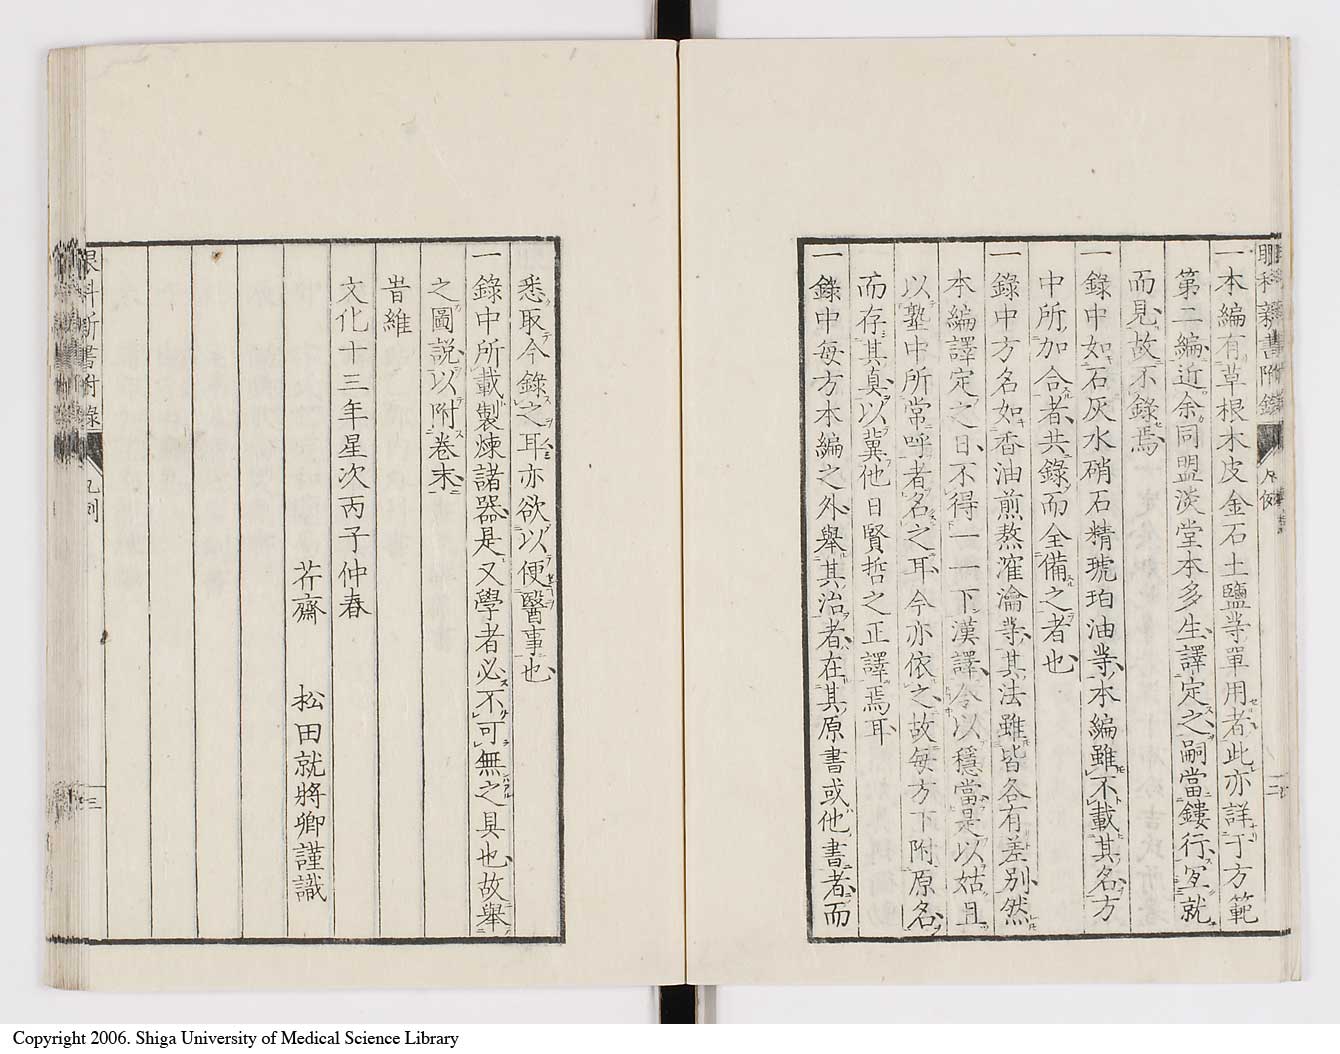 眼科新書附錄
凡例
二
一本編有草根木皮金石土鹽等單用者此亦詳于方範
第二編近余同盟淡堂本多生譯定之嗣當鏤行宜就
而見故不錄焉
一錄中如石灰水硝石精琥珀油等本編雖不載其名方
中所加合者共錄而全備之者也
一錄中方名如香油煎熬漥瀹等其法雖皆各有差別然
本編譯定之日不得一一下漢譯今以穩當是以姑且
以塾中所常呼者名之耳今亦依之故每方下附原名
而存其眞以冀他日賢哲之正譯焉耳
一錄中每方本編之外舉其治者在其原書或他書者而
悉取今錄之耳亦欲以便醫事也
一錄中所載製煉諸器是又學者必不可無之具也故舉
之圖說以附卷末
旹維
文化十三年星次丙子仲春
芥齋 松田就將卿謹識
眼科新書附錄
凡例
三
Copyright 2006. Shiga University of Medical Science Library